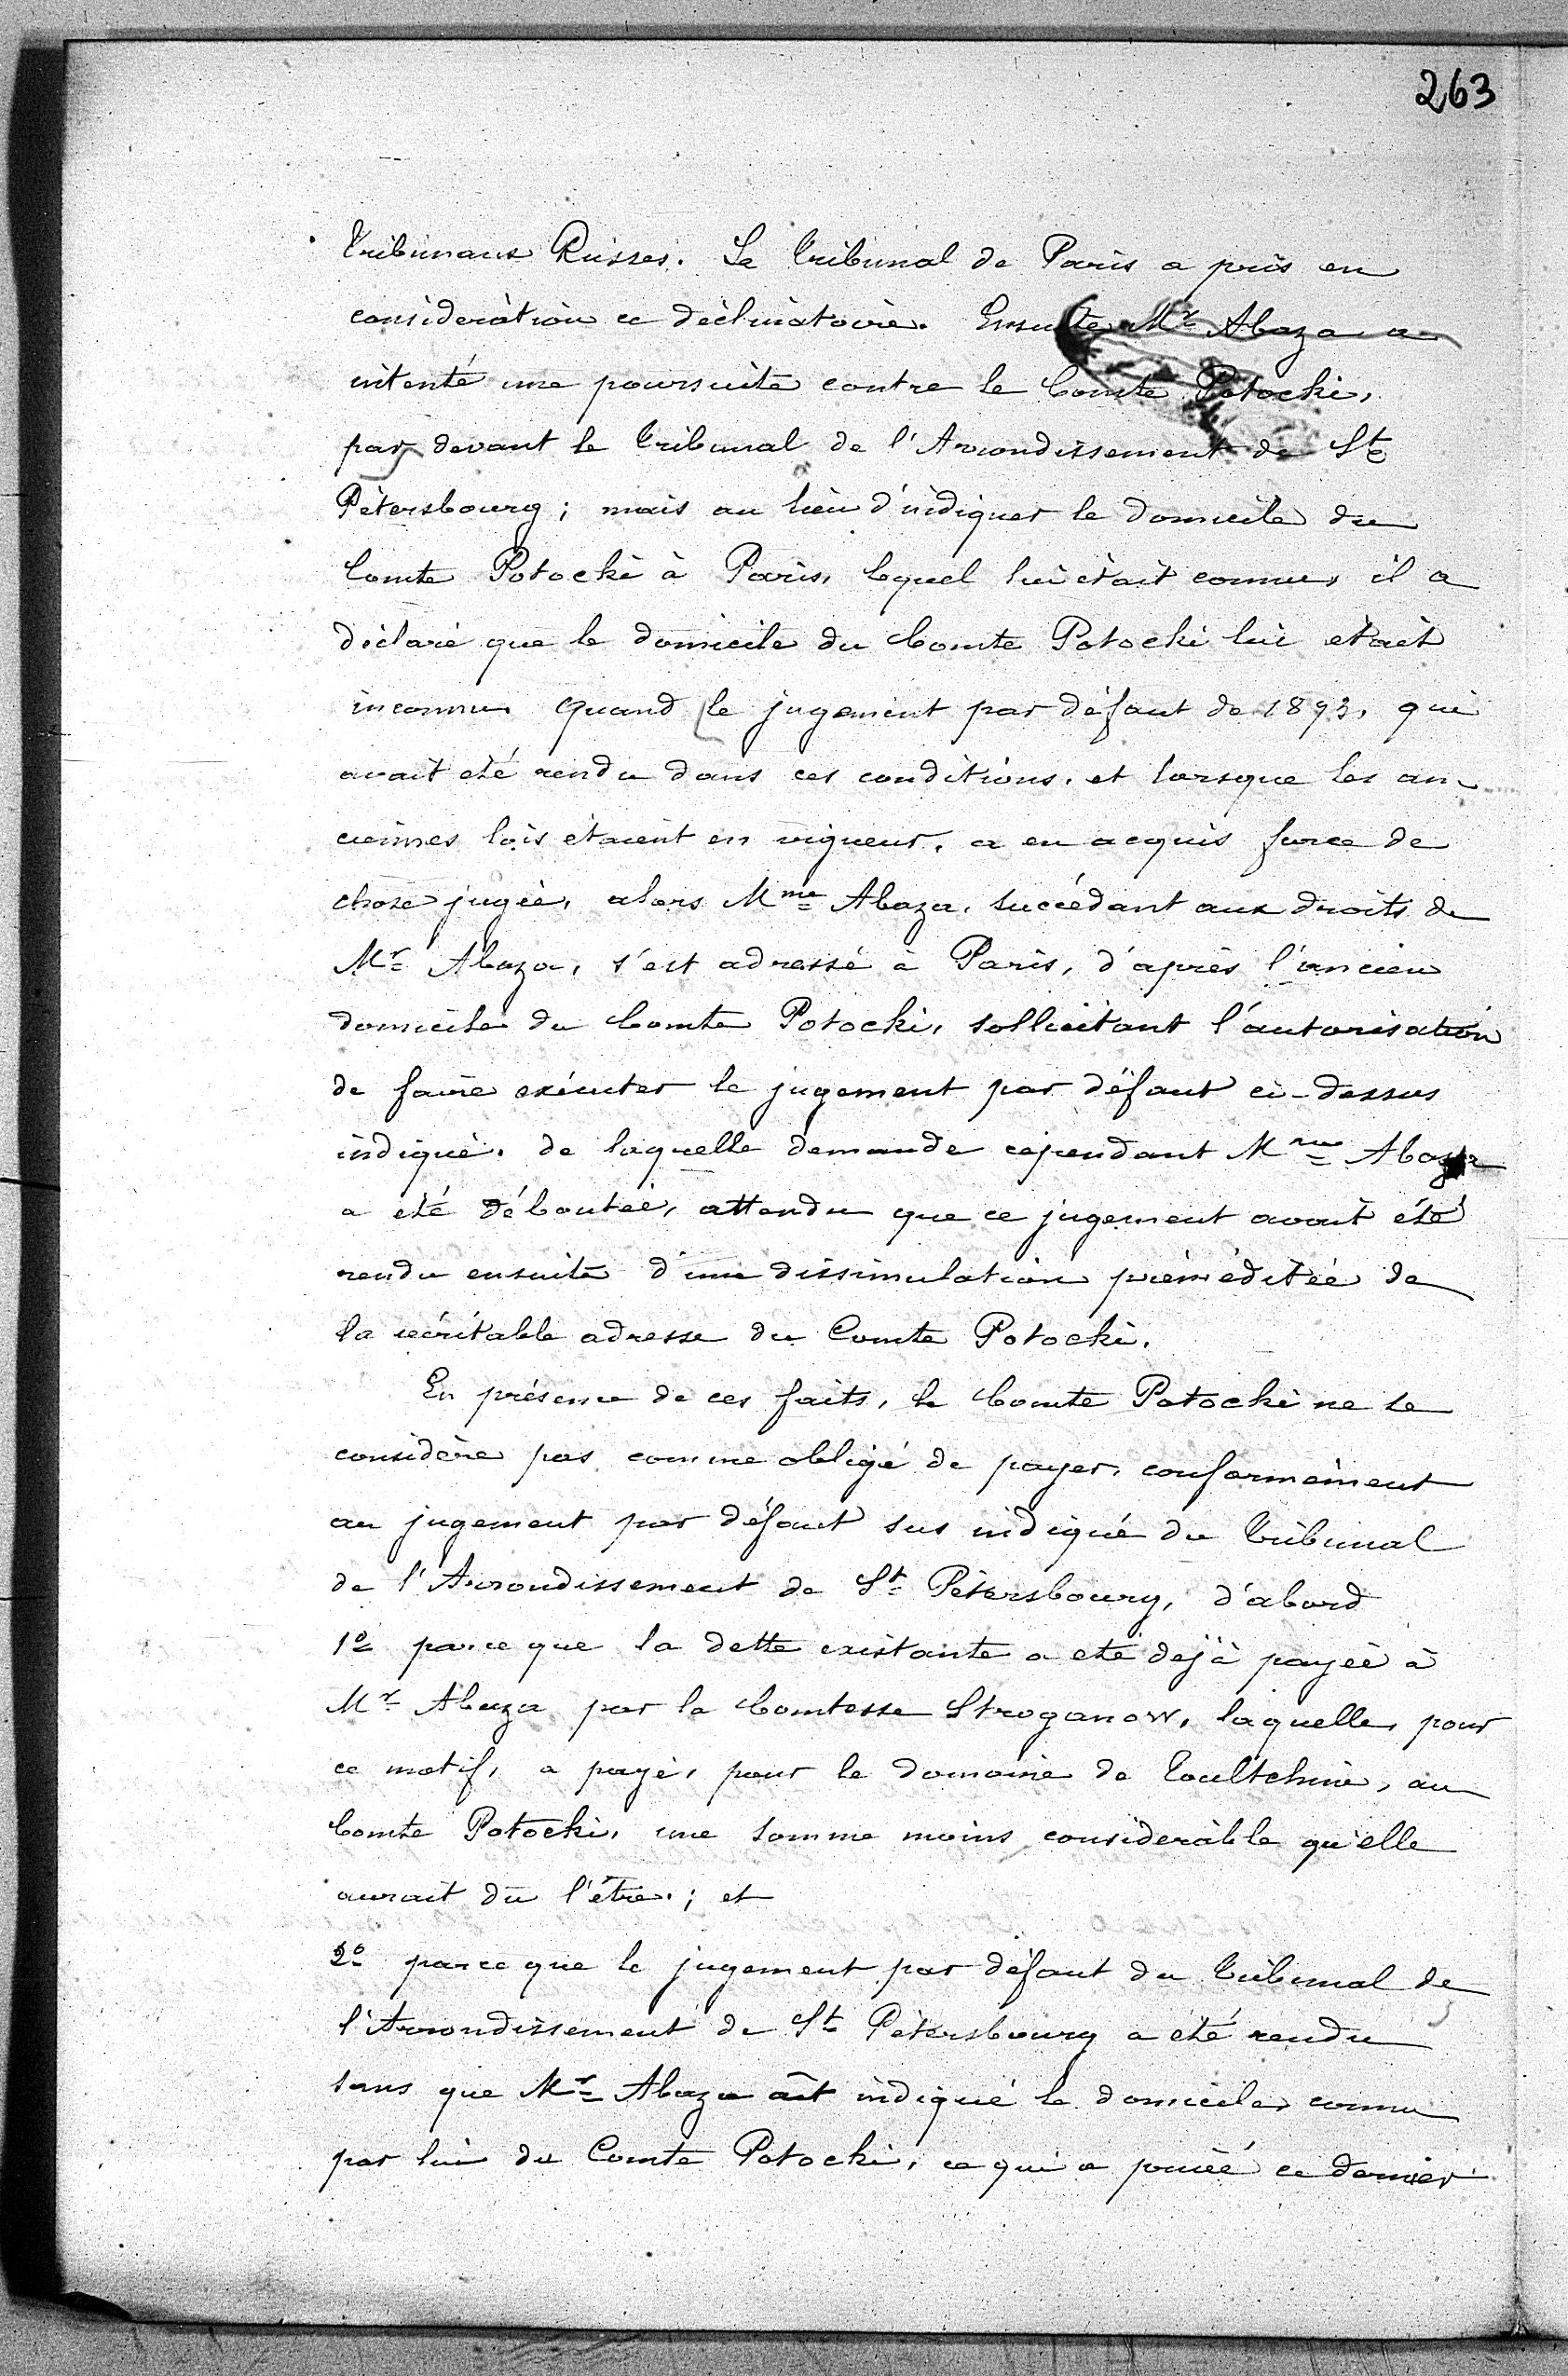 263
Tribunaux Russes. Le Tribunal de Paris a pris en
considération ce déclinatoire. Ensuite Mr Abaza a
intenté une poursuite contre le Comte Potocki,
par devant le Tribunal de l'Arrondissement de St
Pètersbourg; mais au lieu d'indiquer le domicile du
Comte Potocki à Paris, lequel lui était connu, il a
déclaré que le domicile du Comte Potocki lui etait
inconnu. Quand le jugement par défaut de 1893, qui
avait eté rendu dans ces conditions, et lorsque les an-
ciennes lois étaient en vigueur, a eu acquis force de
chose jugée, alors Mme Abaza, succédant aux droits de
Mr Abaza, s'est adressé à Paris, d'après l'ancien
domicile du Comte Potocki, sollicitant l'autorisation
de faire exécuter le jugement par défaut ci-dessus
indiqué, de laquelle demande cependant Mme Abaza
a été déboutée, attendu que ce jugement avait été
rendu ensuite d'une dissimulation préméditée de
la véritable adresse du Comte Potocki.
En présence de ces faits, le Comte Potocki ne se
considère pas comme obligé de payer, conformément
au jugement par défaut sus indiqué du Tribunal
de l'Arrondissement de St Pètersbourg, d'abord
1o parce que la dette existante a eté dejà payée à
Mr Abaza par la Comtesse Stroganow, laquelle, pour
ce motif, a payé, pour le domaine de Toultchine, au
Comte Potocki, une somme moins considerable qu'elle
aurait dû l'être; et
2o parce que le jugement par défaut du Tribunal de
l'Arrondissement de St Pètersbourg a été rendu
sans que Mr Abaza aît indiqué le domicile connu
par lui du Comte Potocki, ce qui a privé ce dernier